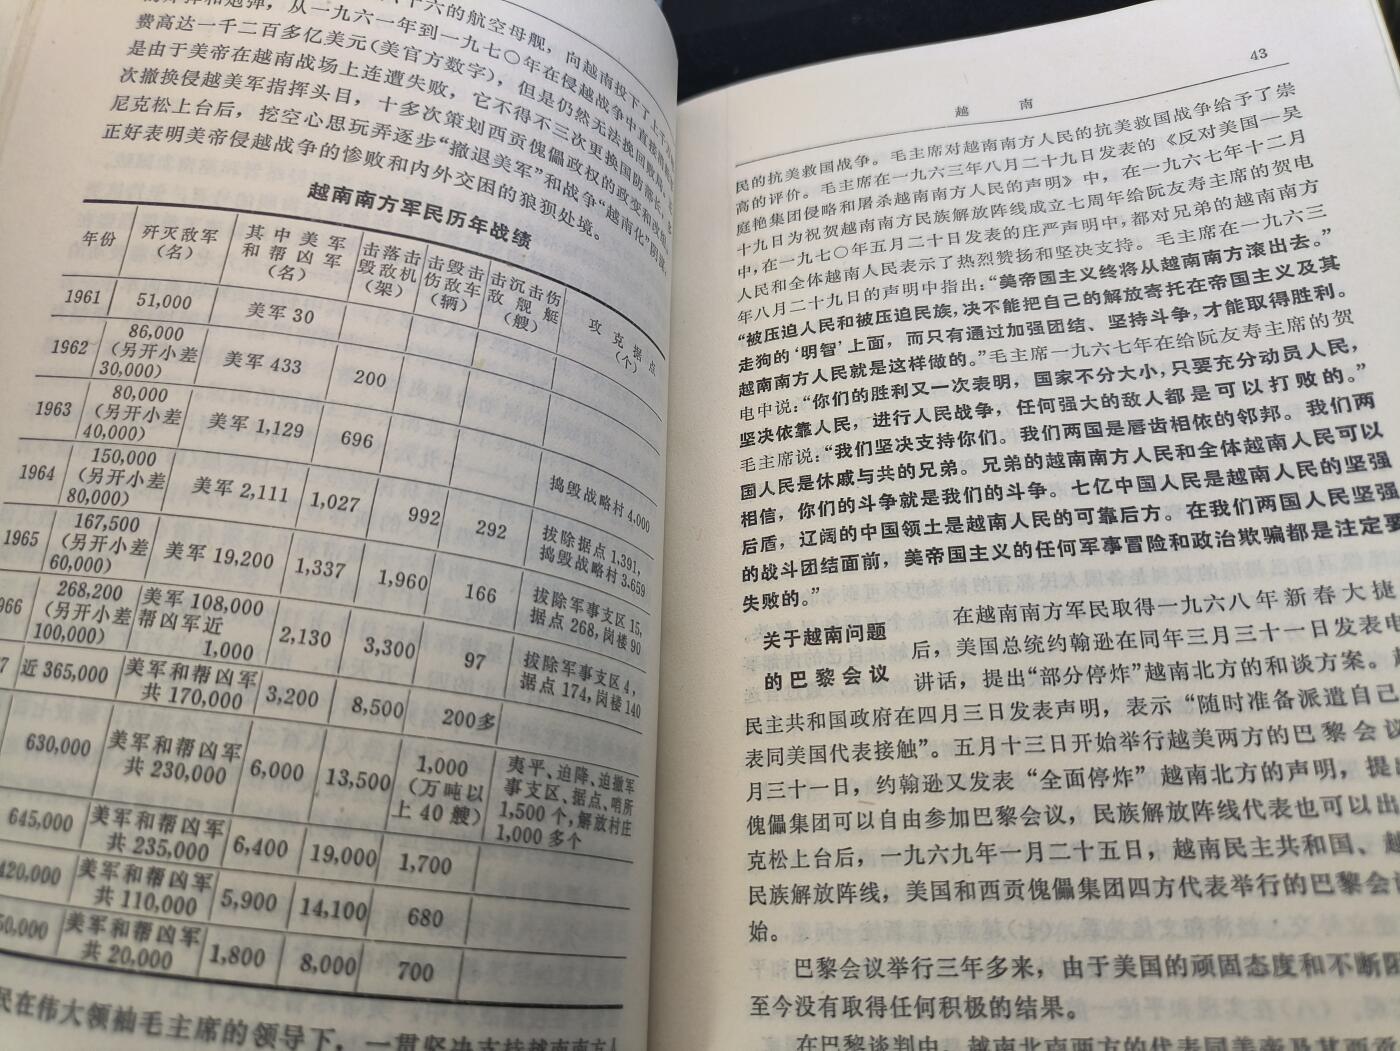 十六的航空母舰，向越南投下了上千
炸弹和炮弹，从一九六一年到一九七〇年在侵越战争中直接消耗
费高达一千二百多亿美元（美官方数字），但是仍然无法挽回败局。
是由于美帝在越南战场上连遭失败，它不得不三次更换国防部长，
次撤换侵越美军指挥头目，十多次策划西贡傀儡政权的政变和改组。
尼克松上台后，挖空心思玩弄逐步“撤退美军”和战争“越南化”阴谋，
正好表明美帝侵越战争的惨败和内外交困的狼狈处境。
越南南方军民历年战绩
年份 歼灭敌军（名） 其中美军和帮凶军（名） 击落击毁敌机（架） 击毁击伤敌车（辆） 击沉击伤敌舰艇（艘） 攻克据点（个）
1961 51,000 美军 30
1962 86,000（另开小差30,000） 美军 433 200
1963 80,000（另开小差40,000） 美军 1,129 696
1964 150,000（另开小差80,000） 美军 2,111 1,027 992 292 捣毁战略村 4,000
1965 167,500（另开小差60,000） 美军 19,200 1,337 1,960 166 拔除据点 1,391，捣毁战略村 3,659
966 268,200（另开小差100,000） 美军 108,000 帮凶军近 1,000 2,130 3,300 97 拔除军事支区 15，据点 268，岗楼 90
7 近 365,000 美军和帮凶军共 170,000 3,200 8,500 200多 拔除军事支区 4，据点 174，岗楼 140
630,000 美军和帮凶军共 230,000 6,000 13,500 1,000（万吨以上 40 艘） 夷平、迫降、迫撤军事支区、据点、哨所 1,500 个，解放村庄 1,000 多个
645,000 美军和帮凶军共 235,000 6,400 19,000 1,700
420,000 美军和帮凶军共 110,000 5,900 14,100 680
50,000 美军和帮凶军共 20,000 1,800 8,000 700
民在伟大领袖毛主席的领导下，一贯坚决支持越南南方人
43
越 南
民的抗美救国战争。毛主席对越南南方人民的抗美救国战争给予了崇
高的评价。毛主席在一九六三年八月二十九日发表的《反对美国—吴
庭艳集团侵略和屠杀越南南方人民的声明》中，在一九六七年十二月
十九日为祝贺越南南方民族解放阵线成立七周年给阮友寿主席的贺电
中，在一九七〇年五月二十日发表的庄严声明中，都对兄弟的越南南方
人民和全体越南人民表示了热烈赞扬和坚决支持。毛主席在一九六三
年八月二十九日的声明中指出：“美帝国主义终将从越南南方滚出去。”
“被压迫人民和被压迫民族，决不能把自己的解放寄托在帝国主义及其
走狗的‘明智’上面，而只有通过加强团结、坚持斗争，才能取得胜利。
越南南方人民就是这样做的。”毛主席一九六七年在给阮友寿主席的贺
电中说：“你们的胜利又一次表明，国家不分大小，只要充分动员人民，
坚决依靠人民，进行人民战争，任何强大的敌人都是可以打败的。”
毛主席说：“我们坚决支持你们。我们两国是唇齿相依的邻邦。我们两
国人民是休戚与共的兄弟。兄弟的越南南方人民和全体越南人民可以
相信，你们的斗争就是我们的斗争。七亿中国人民是越南人民的坚强
后盾，辽阔的中国领土是越南人民的可靠后方。在我们两国人民坚强
的战斗团结面前，美帝国主义的任何军事冒险和政治欺骗都是注定要
失败的。”
关于越南问题
的巴黎会议
在越南南方军民取得一九六八年新春大捷
后，美国总统约翰逊在同年三月三十一日发表电
讲话，提出“部分停炸”越南北方的和谈方案。越
民主共和国政府在四月三日发表声明，表示“随时准备派遣自己
表同美国代表接触”。五月十三日开始举行越美两方的巴黎会议
月三十一日，约翰逊又发表“全面停炸”越南北方的声明，提出
傀儡集团可以自由参加巴黎会议，民族解放阵线代表也可以出
克松上台后，一九六九年一月二十五日，越南民主共和国、越
民族解放阵线，美国和西贡傀儡集团四方代表举行的巴黎会议
始。
巴黎会议举行三年多来，由于美国的顽固态度和不断阻
至今没有取得任何积极的结果。
在巴黎谈判中，越南北南两方的代表同美帝及其西贡